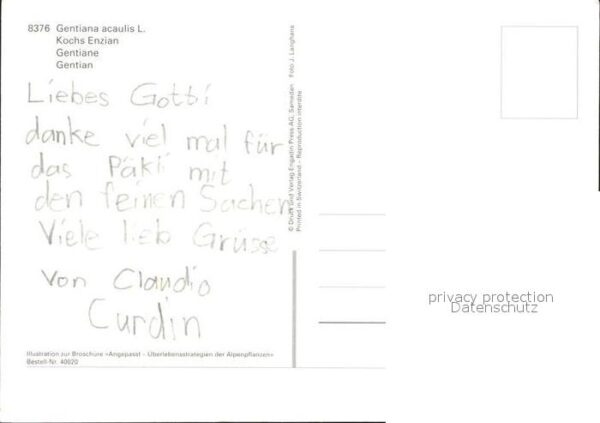 8376 Gentiana acaulis L.
Kochs Enzian
Gentiane
Gentian
Liebes Gotti
danke viel mal für
das Päkli mit
den feinen Sachen
Viele lieb Grüsse
Von Claudio
Curdin
Illustration zur Broschüre «Angepasst – Überlebensstrategien der Alpenpflanzen»
Bestell-Nr. 40020
© Druck und Verlag Engadin Press AG, Samedan Foto J. Langhans
Printed in Switzerland - Reproduction interdite
privacy protection
Datenschutz